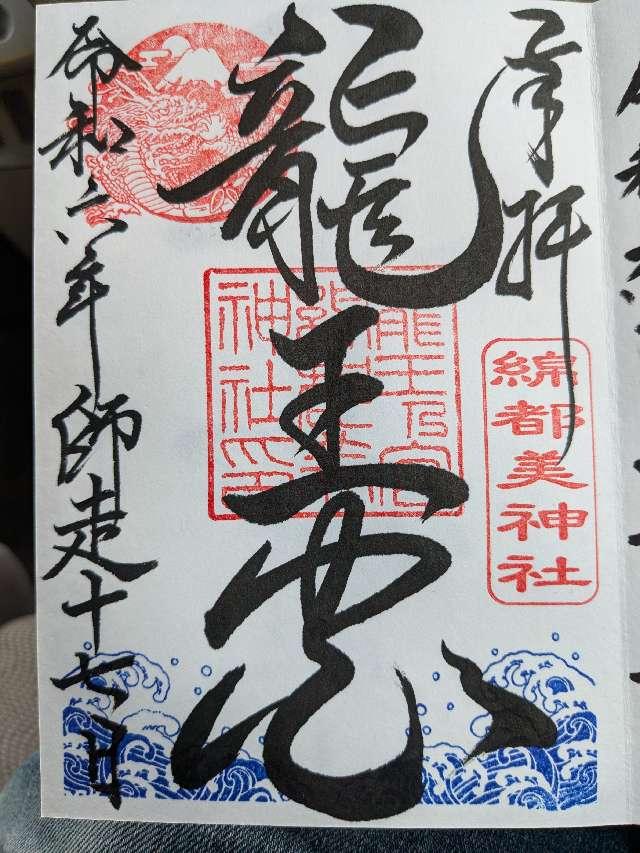 奉拝
綿都美神社
龍王
龍王乃宮
神社印
令和六年師走十七日